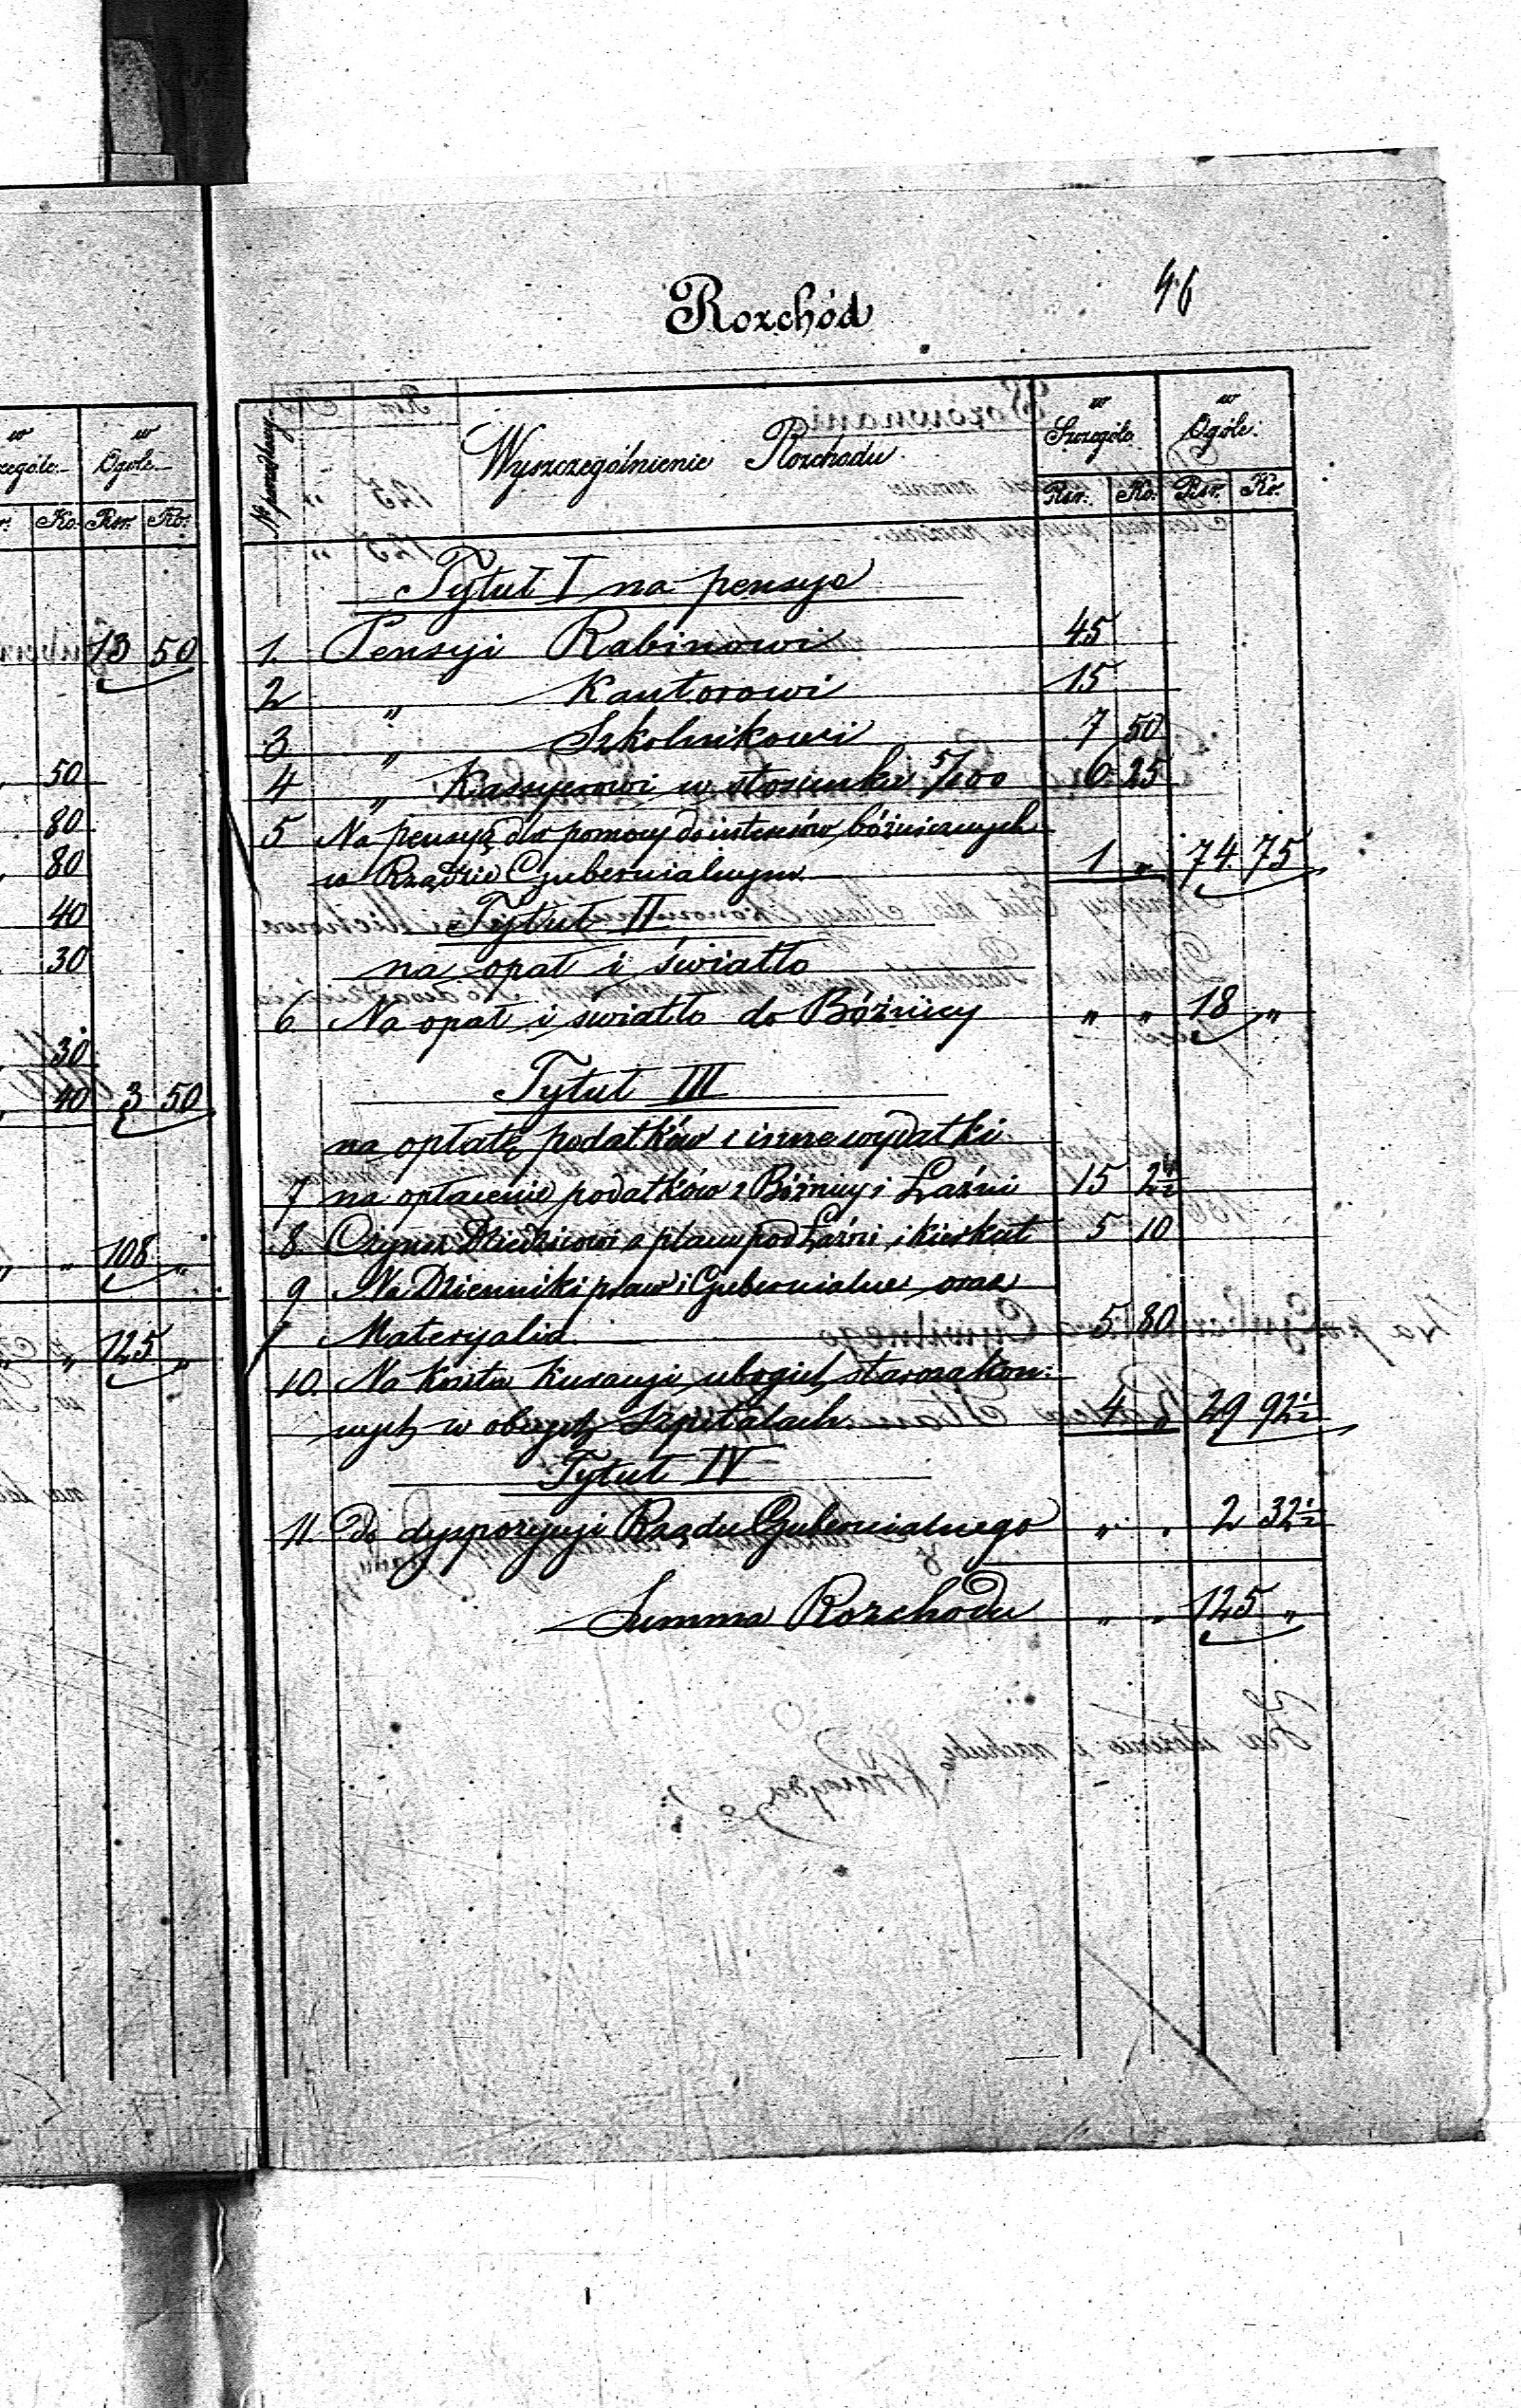 46
Rozchód
w Szczególe
w Ogóle
Wyszczególnienie Rozchodu
Rsr. Ko. Rsr. Ko.
Tytuł I na pensye
1. Pensyi Rabinowi 45
2 " Kantorowi 15
3 " Szkolnikowi 7 50
4 " Kassyerowi w stosunku 5/100 6 25
5 Na pensyą dla pomocy do interesów bóżniczych
w Rządzie Gubernialnym 1 " 74 75
Tytuł II
na opał i światło
6 Na opał i światło do Bóżnicy " " 18 "
Tytuł III
na opłatę podatków i inne wydatki
7 na opłacenie podatków z Bóżnicy i Łaźni 15 2½
8. Czynsz Dziedzicowi z placu pod Łaźni i Kirkut 5 10
9 Na Dzienniki praw i Gubernialne oraz
Materyalia 5 80
10. Na koszta kuracyi ubogich starozakon:
nych w obcych Szpitalach 4 " 29 92½
Tytuł IV
11. Do dyspozycyi Rządu Gubernialnego " " 2 32½
Summa Rozchodu " " 125 "
w Ogóle
Ko. Rsr. Ko.
13 50
50
80
80
40
30
30
40 3 50
" " 108 "
" " 125 "